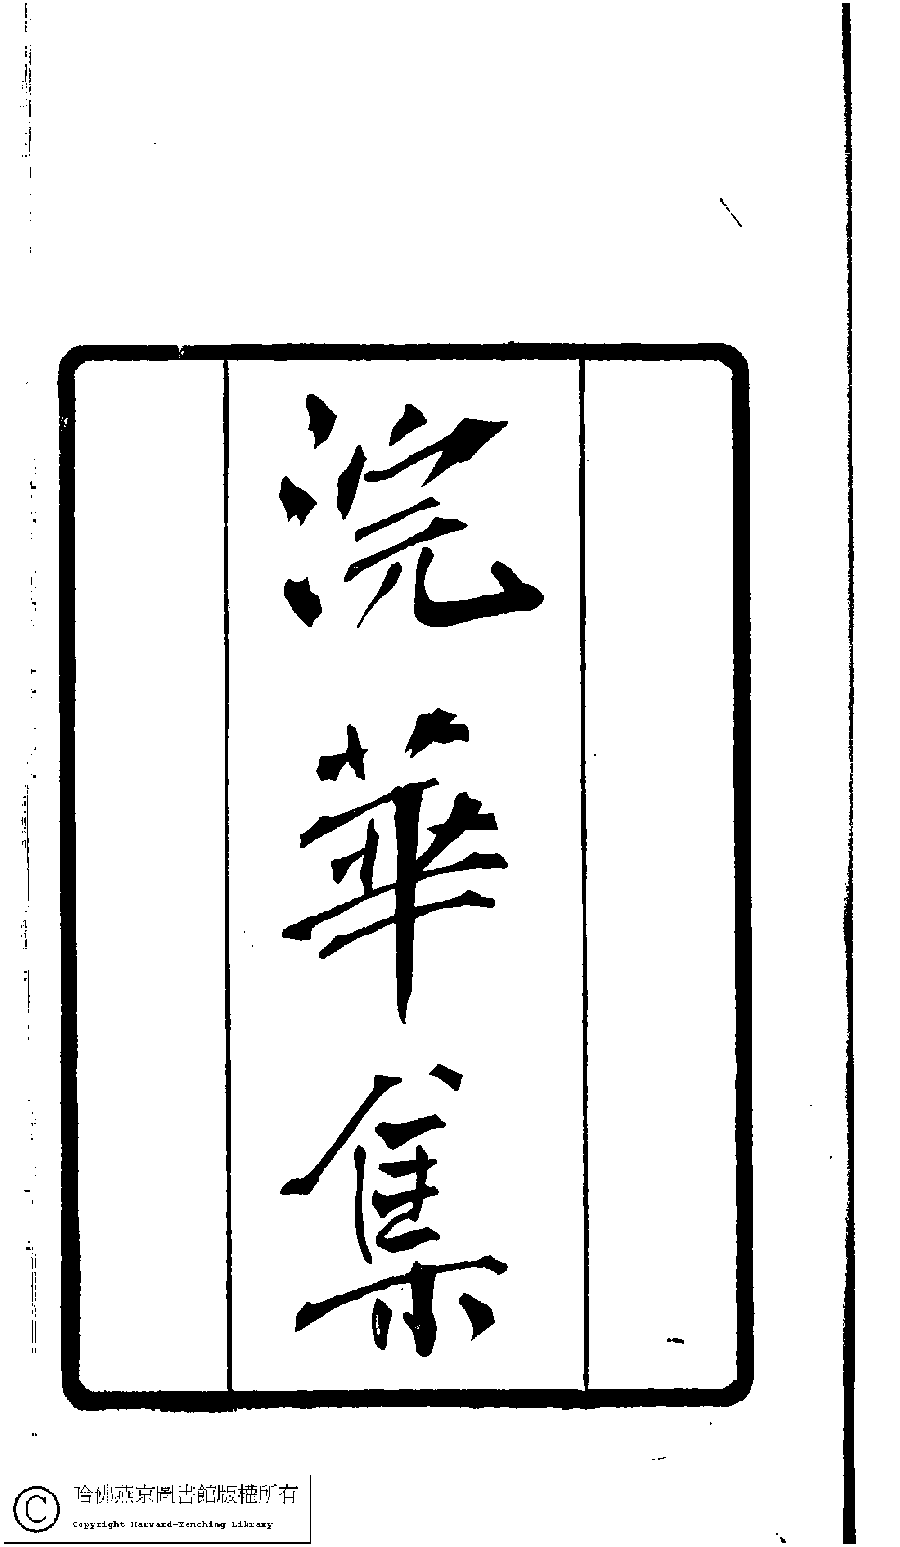 浣華集
哈佛燕京圖書館版權所有
Copyright Harvard-Yenching Library